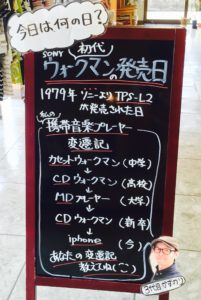 今日は何の日?
SONY 初代
ウォークマンの発売日
1979年 ソニーより TPS-L2
が発売された日
私の
携帯音楽プレーヤー
変遷記
カセットウォークマン (中学)
↓
CDウォークマン (高校)
↓
MDプレーヤー (大学)
↓
CDウォークマン (新卒)
↓
iphone (今)
あなたの変遷記
教えてね(^^)
3代目かずの